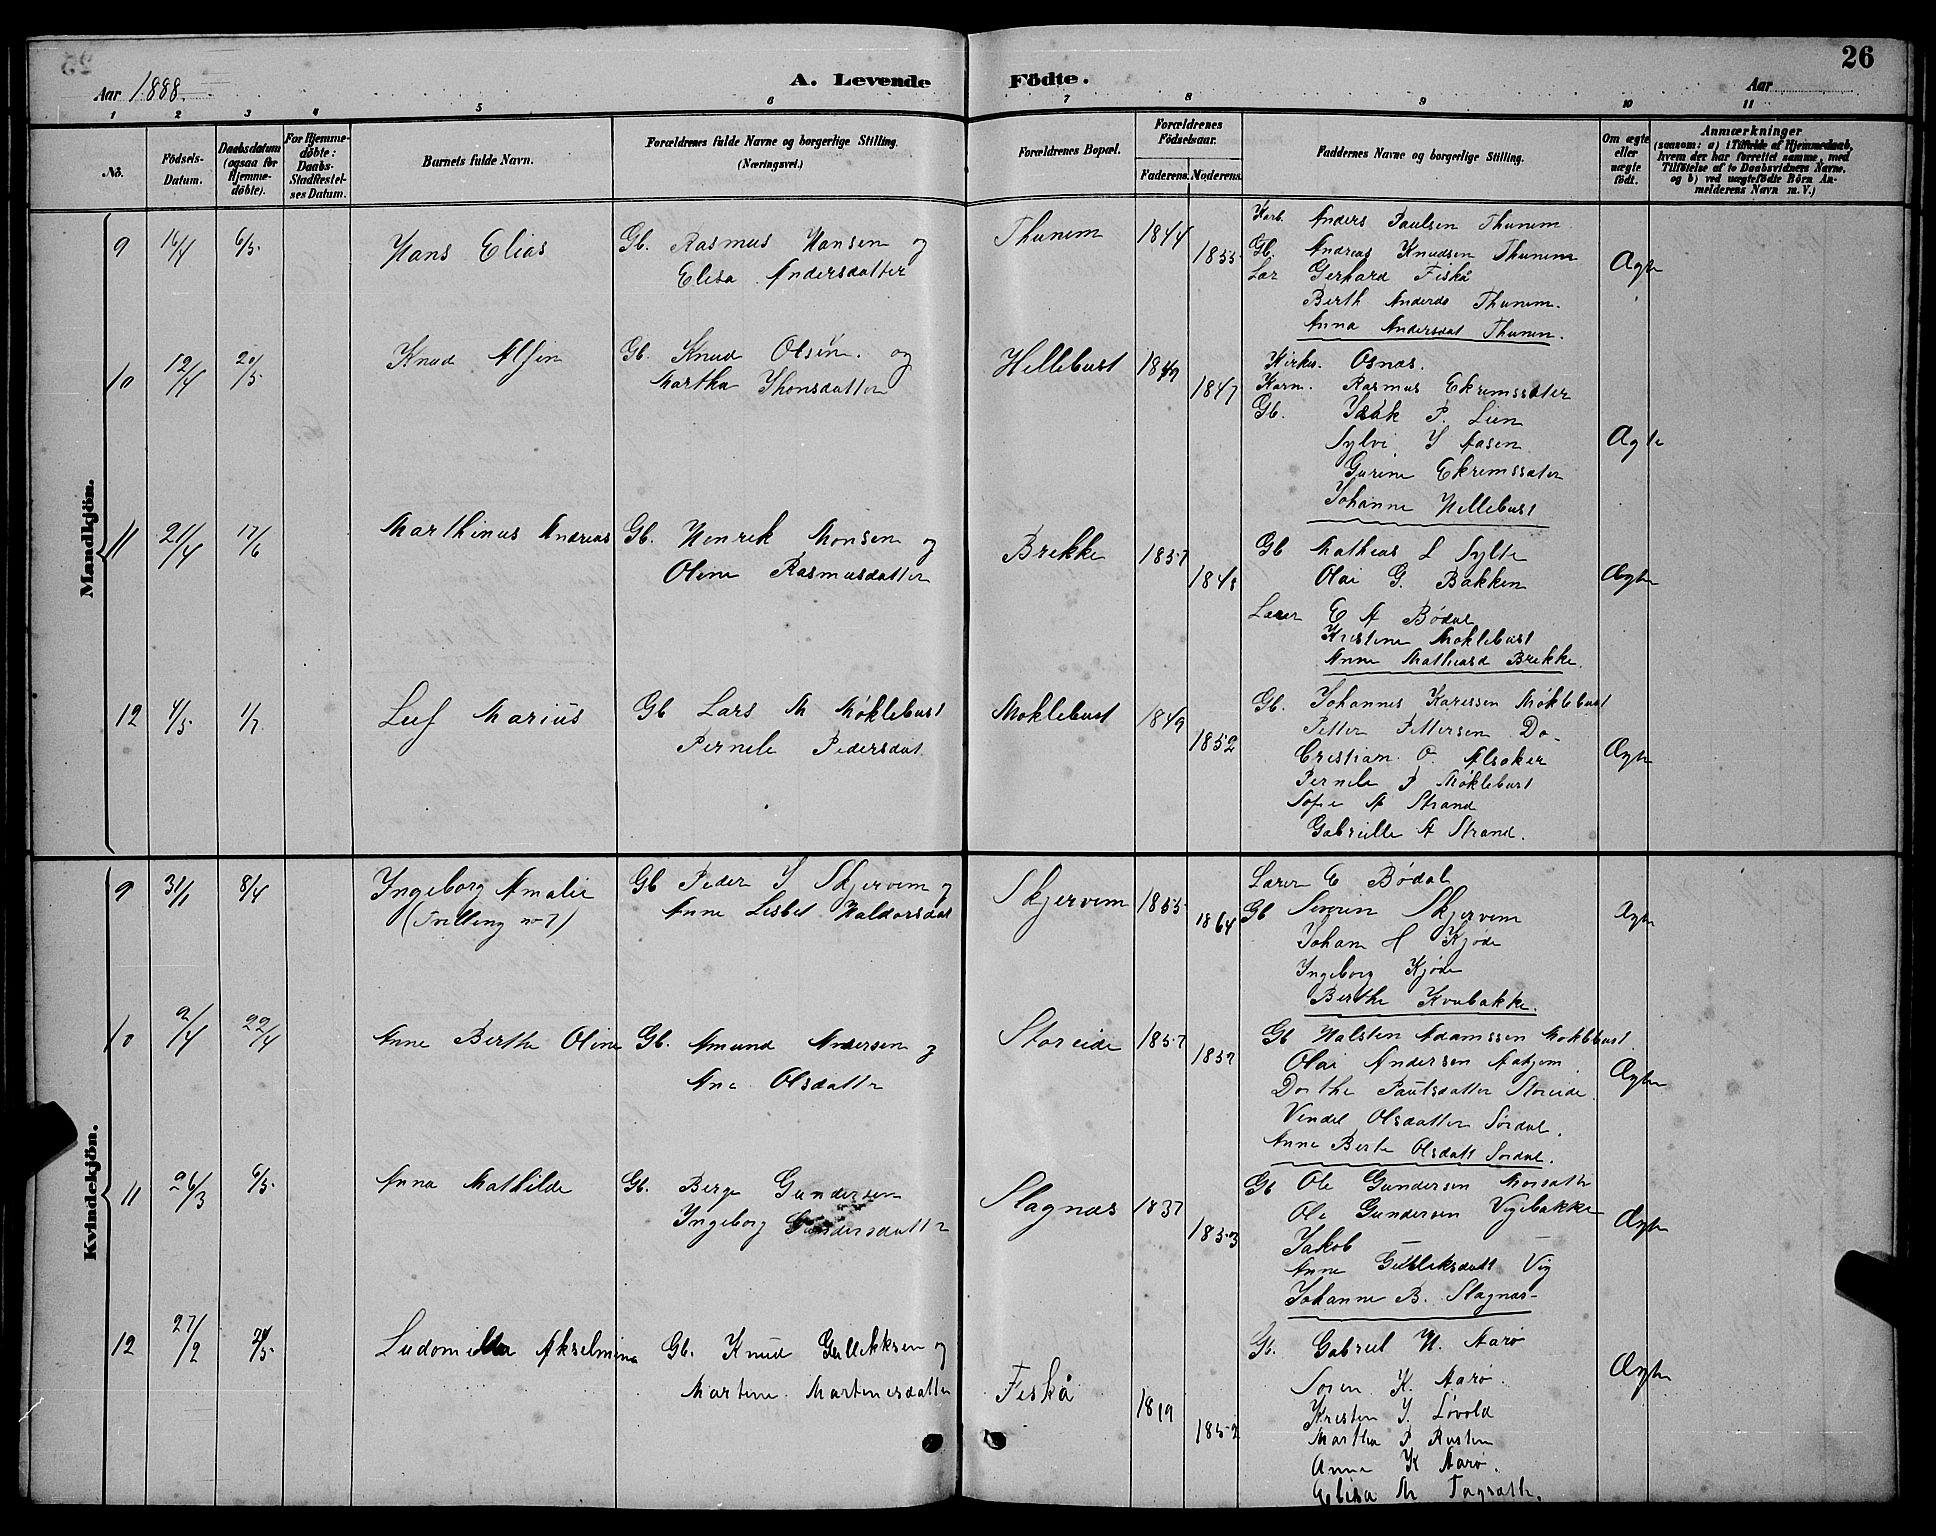 26
Aar 1888.
A. Levende Födte.
Aar
1 2 3 4 5 6 7 8 9 10 11
No.
Födsels-Datum.
Daabsdatum (ogsaa for Hjemme-döbte).
For Hjemme-döbte: Daabs-Stadfestel-ses Datum.
Barnets fulde Navn.
Forældrenes fulde Navne og borgerlige Stilling.
(Næringsvei.)
Forældrenes Bopæl.
Forældrenes Födselsaar.
Faderens. Moderens.
Faddernes Navne og borgerlige Stilling.
Om ægte eller uægte födt.
Anmærkninger
(saasom: a) i Tilfælde af Hjemmedaab, hvem der har forrettet samme, med Tilföielse af to Daabsvidners Navne, og b) ved uægtefödte Börn An-melderens Navn m. V.)
Mandkjön.
9 16/4 6/5. Hans Elias Gb. Rasmus Hansen og
Elisa Andersdatter
Thunem 1844 1855
Karb. Anders Paulsen Thunem
Gb. Andreas Knudsen Thunem
Lær Gerhard Fiskå
Berth Anderds Thunem.
Anna Andersdat Thunem.
Ægte
10 12/4 20/5. Knud Alfin Gb. Knud Olsen. og
Martha Jhonsdatter
Hellebust 1849 1847
Kirks. Osnæs.
Karm. Rasmus Ekremssæter
Gb. Isak P. Lien
Sylvi J Aasen
Gurine Ekremssæter
Johanne Hellebust
Ægte
11 21/4 17/6 Marthinus Andreas Gb. Henrik Monsen og
Oline Rasmusdatter
Brekke 1857 1848
Gb Mathias L Sylte
Olai G. Bakken
Lærer E A Bödal
Kristine Moklebust
Anne Mathiasd Brekke.
Ægte
12 4/5. 1/7. Leif Marius Gb Lars M Möklebust
Pernele Pedersdat
Moklebust 1849 1852
Gb. Johannes Karessen Möklebust
Petter Pettersen Do-
Cristian O. Alsaker
Pernele P Möklebust
Sofie A Strand
Gabrielle A Strand.
Ægte
Kvindekjön.
9 31/1 8/4 Ingeborg Amalie
(Tvilling no 7)
Gb Peder J Skjervem og
Anne Lisbet Haldorsdat
Skjervem 1855 1864
Lærer E Bödal
Gb Severin Skjervem
Johan H Kjöde
Ingeborg Kjöde
Berthe Kvubakke.
Ægte
10 2/4 22/4 Anne Berthe Oline Gb. Amund Andersen og
Ane Olsdatter
Storeide 1857 1857
Gb Halsten Adamssen Moklebust.
Olai Andersen Aakjem
Dorthe Paulsdatter Storeide
Vendel Olsdatter Sördal.
Anne Berte Olsdatt Sördal.
Ægte
11 26/3 6/5. Anna Mathilde Gb. Berge Gundersen
Ingeborg Gundersdatter
Slagnæs 1837 1853
Gb Ole Gundersen Morsætr
Ole Gundersen Vigebakke
Jakob
Anne Gulleksdatt Vig
Johanne B. Slagnæs-
Ægte
12 27/2 Ludomilda Akselmine Gb. Knud Gullekksen og
Martine Martinesdatter
Fiskå 1852
Gb. Gabriel H. Aarö
Sören K. Aarö.
Kristen J. Lövold
Martha P Rusten
Anna K Aarö.
Elisa M
Ægte